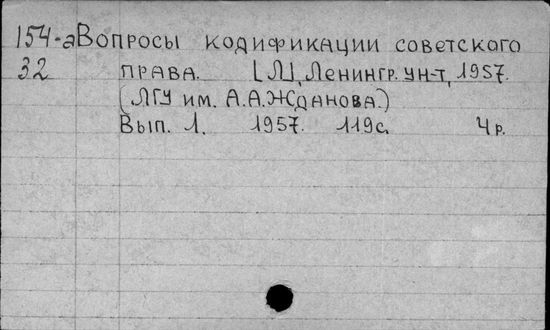 154-а Вопросы кодификации советского
32 права. [Л], Ленингр. ун-т, 1957.
(ЛГУ им. А.А.Жданова.)
Вып. 1. 1957. 119с. 4 р.